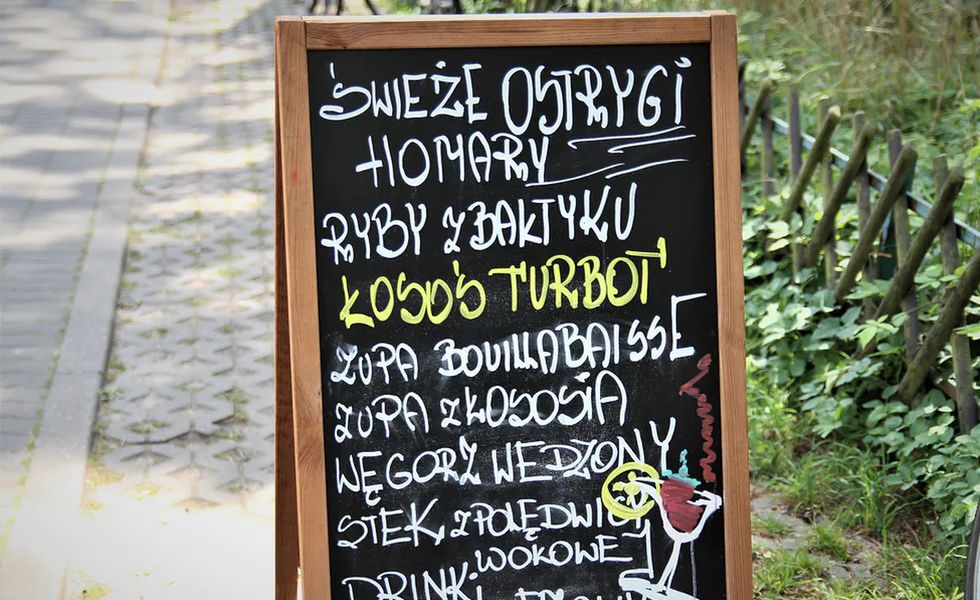 ŚWIEŻE OSTRYGI
HOMARY
RYBY Z BAŁTYKU
ŁOSOŚ TURBOT
ZUPA BOUILLABAISSE
ZUPA Z ŁOSOSIA
WĘGORZ WĘDZONY
STEK Z POLĘDWICY
WOŁOWEJ
DRINKI